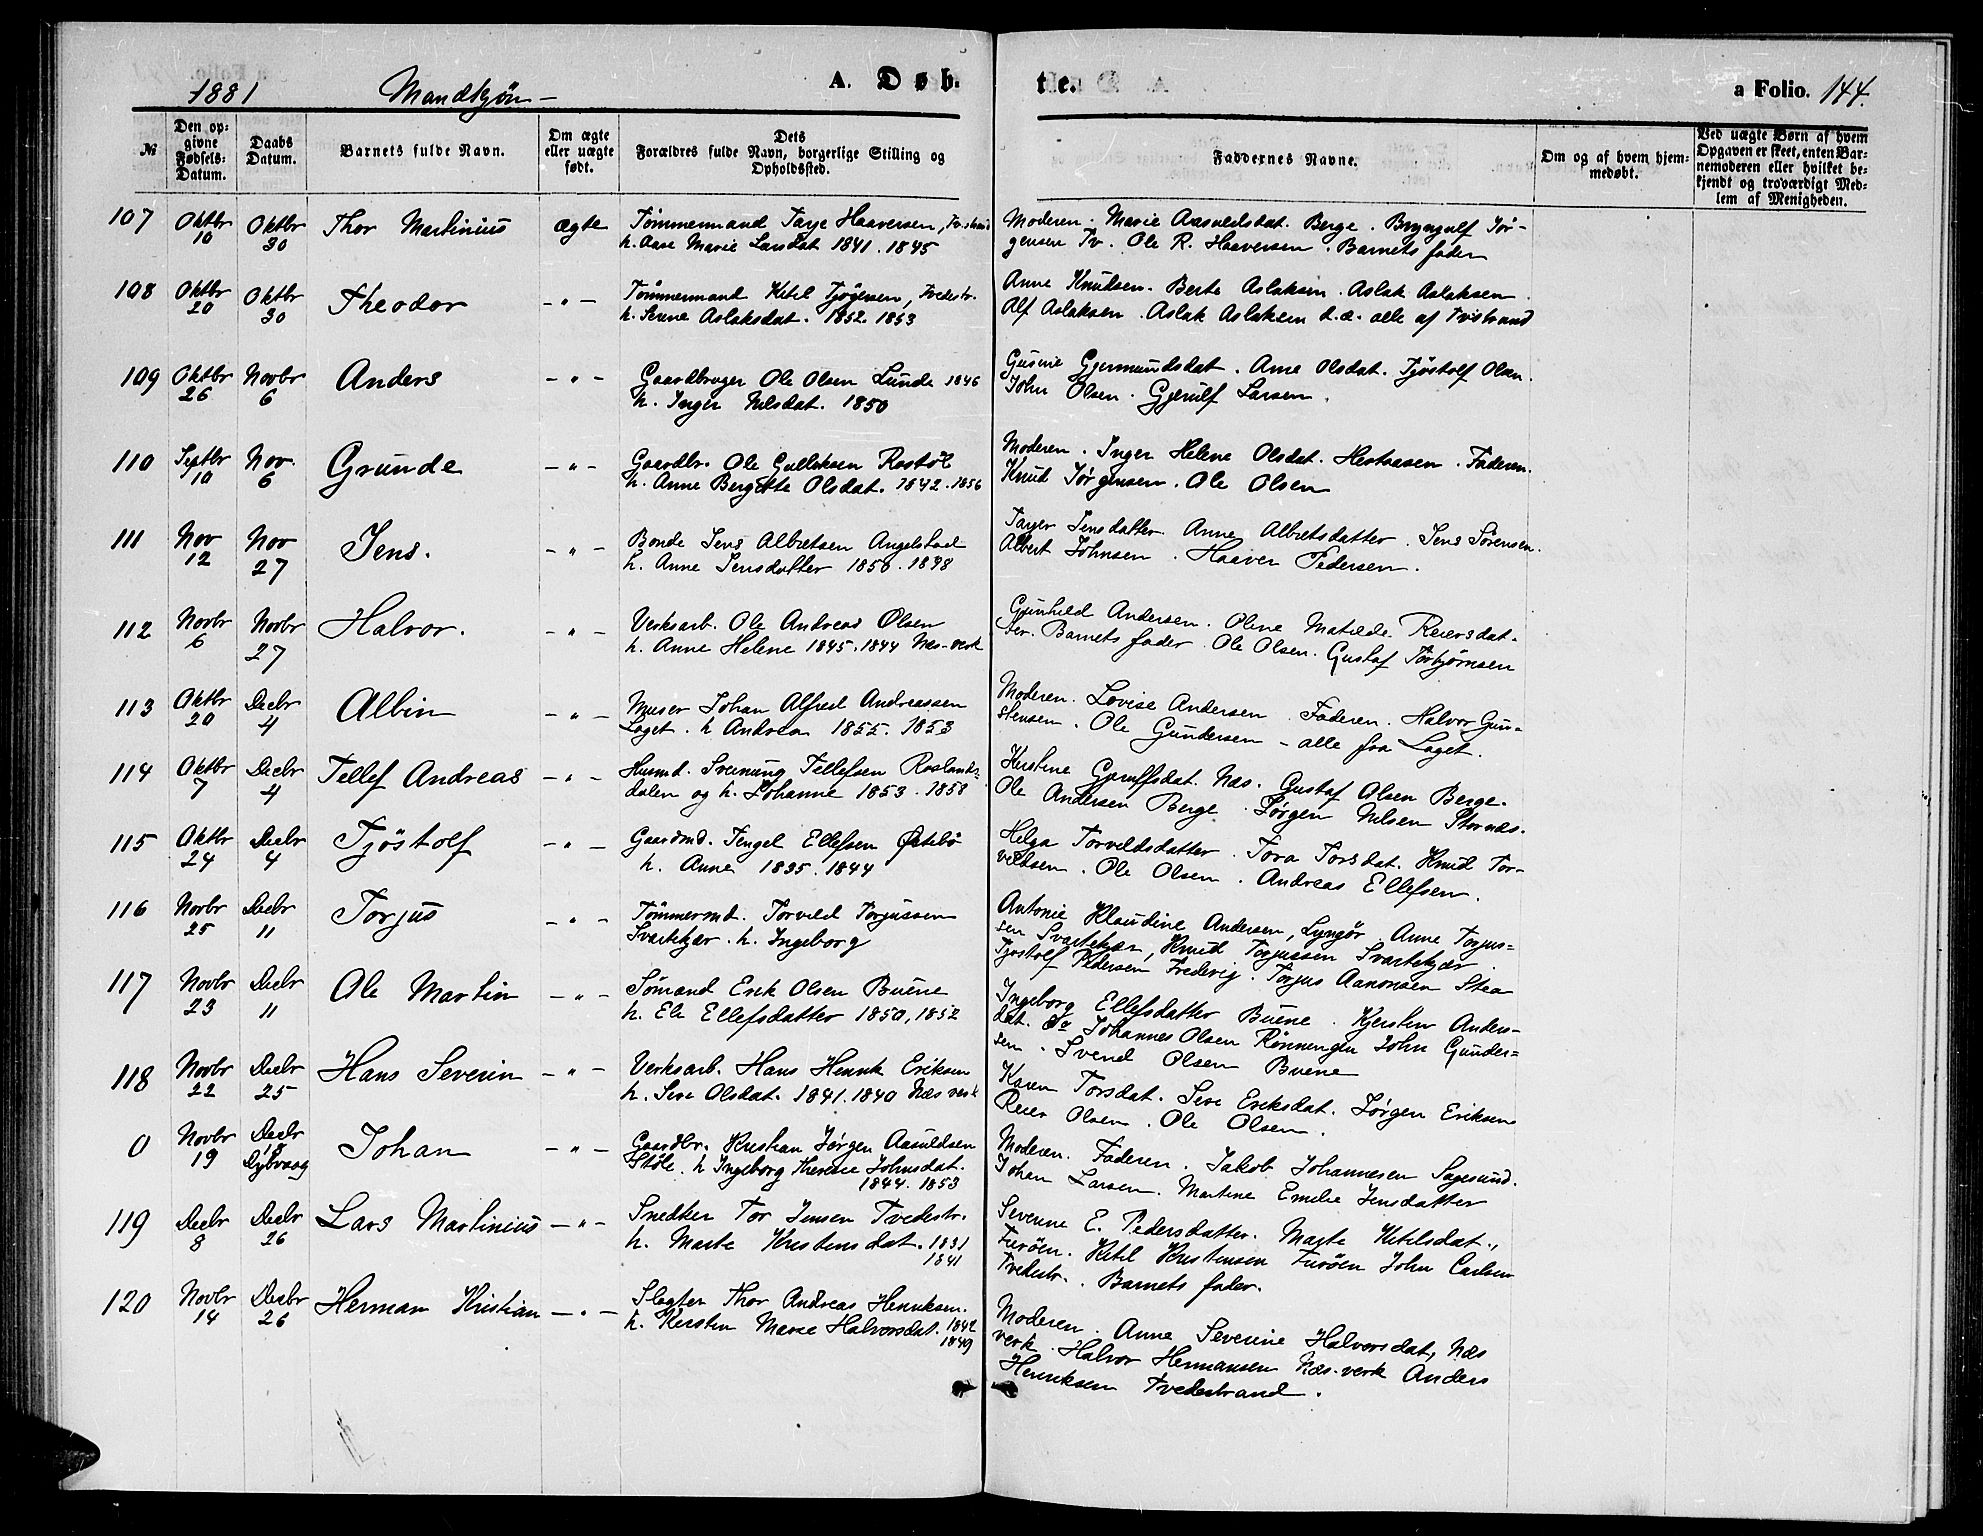 1881 Mandkjøn – A. Døb- te. a Folio. 144.
№
Den op-
givne
Fødsels-
Datum.
Daabs
Datum.
Barnets fulde Navn.
Om ægte
eller uægte
født.
Dets
Forældres fulde Navn, borgerlige Stilling og
Opholdssted.
Faddernes Navne.
Om og af hvem hjem-
medøbt.
Ved uægte Børn af hvem
Opgaven er skeet, enten Bar-
nemoderen eller hvilket be-
kjendt og troværdigt Med-
lem af Menigheden.
107 Oktbr 10 Oktbr 30 Thor Martinius ægte
Tømmermand Tarje Haaversen, Tv.strand
h. Aase Marie Larsdat 1841. 1845
Moderen. Marie Aasuldsdat. Berge. Bryngulf Jør-
gensen Tv. Ole R. Haaversen. Barnets fader
108 Oktbr 20 Oktbr 30 Theodor – " –
Tømmermand Ketil Tjøgersen, Tvedestr.
h. Serine Aslaksdat. 1852. 1853
Anne Knudsen. Berte Aslaksen. Aslak Aslaksen.
Alf Aslaksen. Aslak Aslaksen d.æ. alle af Tv.strand
109 Oktbr 26 Novbr 6 Anders – " –
Gaardbruger Ole Olsen Lunde 1846
h. Inger Nilsdat. 1850
Gjermundsdat. Anne Olsdat. Tjøstolf Olsen.
John Olsen. Gjerulf Larsen.
110 Septbr 10 Nov. 6 Grunde – " –
Gaardbr. Ole Gulleksen Rostøl
h. Anne Bergitte Olsdat. 1842. 1856
Moderen. Inger Helene Olsdat. Hestaasen. Faderen.
Knud Jørgensen. Ole Olsen
111 Nov 12 Nov 27 Jens. – " –
Bonde Jens Albretsen Angelstad
h. Anne Jensdatter 1850. 1848
Jensdatter Anne Albretsdatter. Jens Sørensen.
Albert Johnsen. Haaver Pedersen.
112 Novbr 6 Novbr 27 Halvor. – " –
Verksarb. Ole Andreas Olsen
h. Anne Helene 1845. 1844 Næs-verk
Gunhild Andersen. Oline Matilde Reiersdat-
ter. Barnets fader. Ole Olsen. Gustaf Torbjørnsen
113 Oktbr 20 Decbr 4 Albin – " –
Murer Johan Alfred Andreassen
Laget. h Andrea 1855. 1853
Moderen. Lovise Andersen. Faderen. Halvor Gun-
stensen. Ole Gundersen – alle fra Laget.
114 Oktbr 7 Decbr 4 Tellef Andreas – " –
Husmd. Sveinung Tellefsen Roslands-
dalen og h. Johanne 1853. 1858
Kirstine Gjerulfsdat. Næs. Gustaf Olsen Berge.
Ole Andersen Berge. Jørgen Nilsen Stornæs.
115 Oktbr 24 Decbr 4 Tjøstolf – " –
Gaardmd. Tengel Ellefsen Østebø
h. Anne 1835. 1844
Helga Torvildsdatter. Tora Torsdat. Knud Tor-
vildsen. Ole Olsen. Andreas Ellefsen.
116 Novbr 25 Decbr 11 Torjus – " –
Tømmermd. Torvild Torjussen
Svartekjær. h. Ingeborg
Antonie Klaudine Andersen, Lyngør. Anne Torjus-
sen Svartekjær, Knud Torjussen Svartekjær.
Tjøstolf Pedersen Fredevig. Torjus Aanonsen Stea
117 Novbr 23 Decbr 11 Ole Martin – " –
Sømand Erik Olsen Buene
h. Eli Ellefsdatter 1850, 1852
Ingeborg Ellefsdatter Buene. Kjersten Anders-
dat. do Johannes Olsen Rønningen John Gunder-
sen. Svend Olsen Buene
118 Novbr 22 Decbr 25 Hans Severin – " –
Verksarb. Hans Henrik Eriksen
h. Sire Olsdat. 1841. 1840 Næs verk
Karen Torsdat. Sire Eriksdat. Jørgen Eriksen
Reier Olsen. Ole Olsen.
0 Novbr 19 Decbr 18 Dybvaag Johan – " –
Gaardbr. Kristian Jørgen Aasuldsen
Støle. h Ingeborg Therese Johnsdat.
1844. 1853
Moderen. Faderen. Jakob Johannesen Sagesund.
Johan Larsen. Martine Emilie Jensdatter
119 Decbr 8 Decbr 26 Lars Martinius – " –
Snedker Tor Jensen Tvedestr.
h. Marte Kristensdat. 1831
1841
Severine E. Pedersdatter. Marte Ketilsdat.,
Furøen. Ketil Kristensen Furøen John Carlsen
Tvedestr. Barnets fader.
120 Novbr 14 Decbr 26 Herman Kristian – " –
Slagter Thor Andreas Henriksen.
h. Kersten Marie Halvorsdat. 1842
1849
Moderen. Anne Severine Halvorsdat, Næs
verk. Halvor Hermansen Næs-verk Anders
Henriksen Tvedestrand.